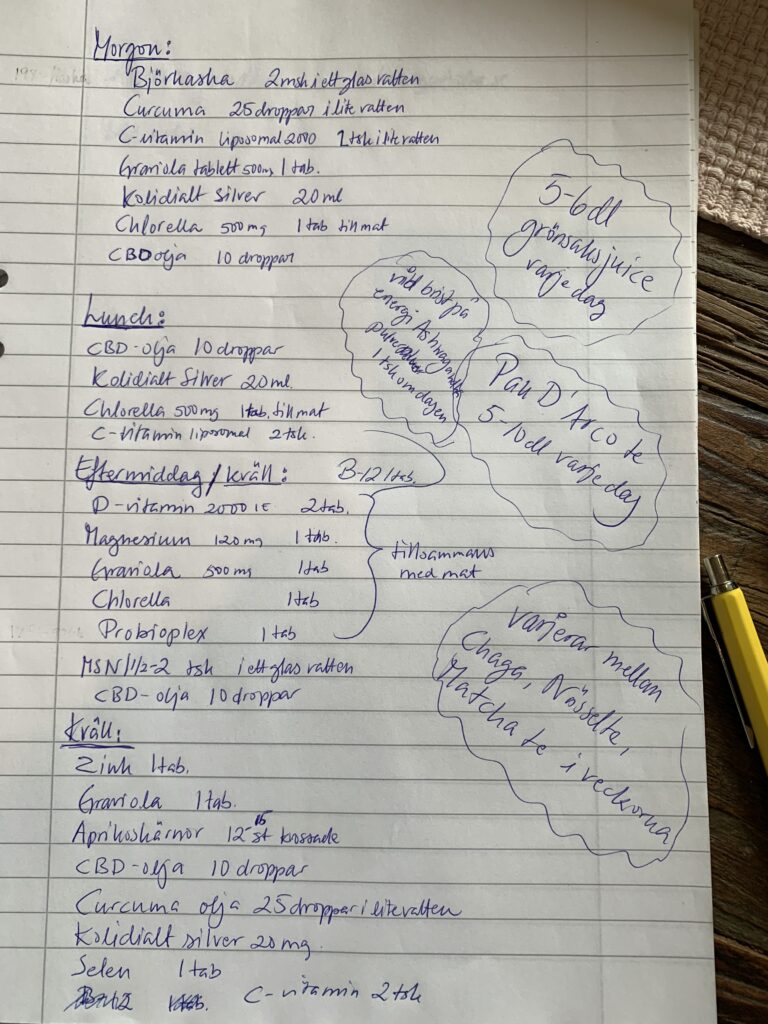 Morgon:
Björkaska 2msk i ett glas vatten
Curcuma 25 droppar i lite vatten
C-vitamin liposomal 2000 2 tsk i lite vatten
Graviola tablett 500mg 1 tab.
Kolidialt Silver 20 ml
Chlorella 500mg 1 tab till mat
CBD olja 10 droppar
5-6 dl
grönsaksjuice
varje dag
Lunch:
CBD-olja 10 droppar
Kolidialt Silver 20 ml
Chlorella 500mg 1 tab. till mat
C-vitamin liposomal 2 tsk.
vid brist på
energi Ashwagandha
1 tsk om dagen
Pau D'Arco te
5-10 dl varje dag
Eftermiddag/kväll: B-12 1 tab.
D-vitamin 2000 IE 2 tab.
Magnesium 120 mg 1 tab.
Graviola 500 mg 1 tab
Chlorella 1 tab
Probioplex 1 tab
tillsammans
med mat
MSN 1 1/2-2 tsk i ett glas vatten
CBD-olja 10 droppar
varierar mellan
Chaga, Nässelte,
Matcha te i veckorna
Kväll:
Zink 1 tab.
Graviola 1 tab.
Aprikoskärnor 12-15 st krossade
CBD-olja 10 droppar
Curcuma olja 25 droppar i lite vatten
Kolidialt silver 20 mg.
Selen 1 tab
C-vitamin 2 tsk